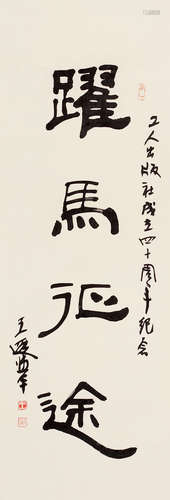 工人出版社成立四十周年紀念
躍馬征途
王遐舉